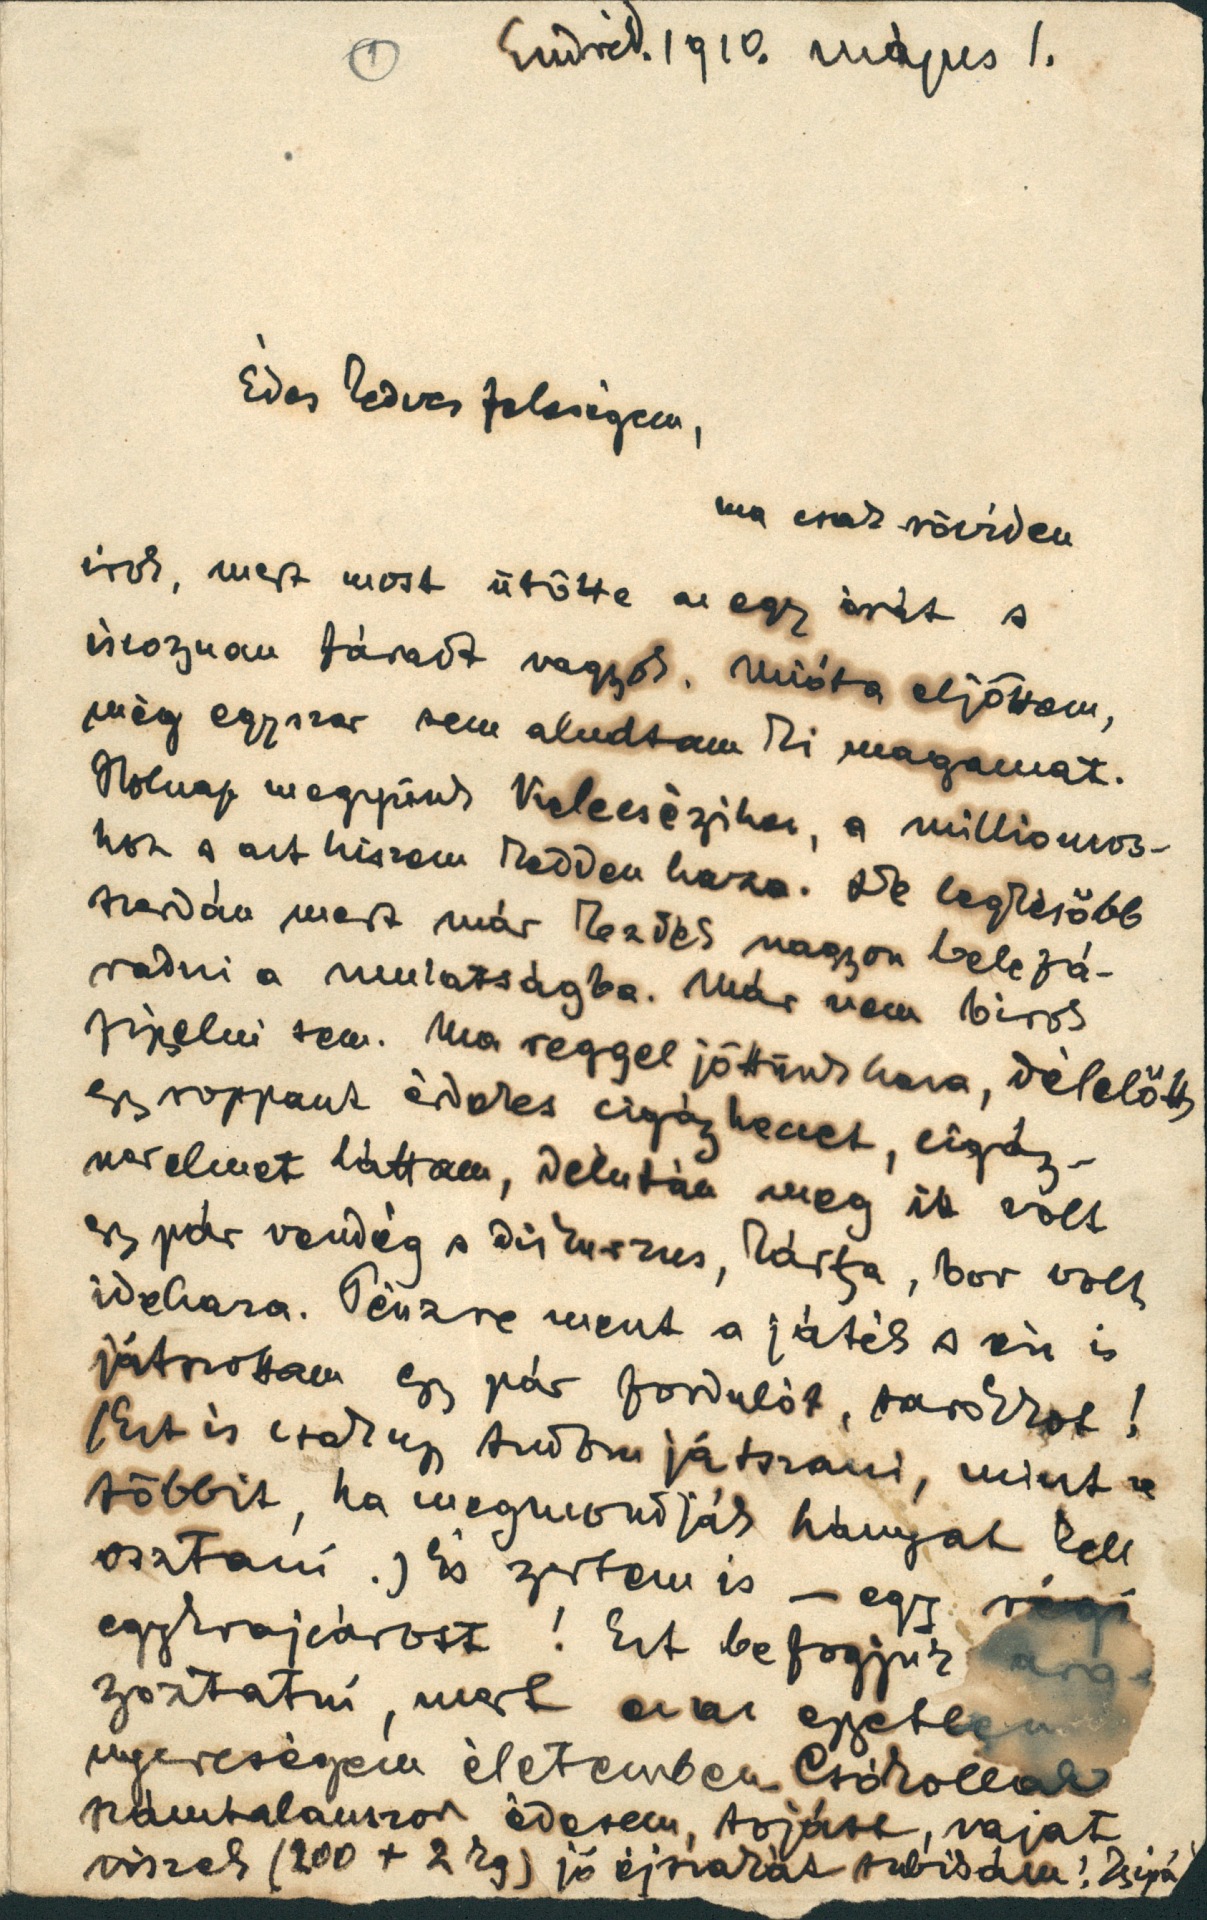 ①
Endrőd. 1910. május 1.
Édes kedves feleségem,
ma csak röviden
irok, mert most ütötte az egy órát s
iszonyan fáradt vagyok. Mióta eljöttem,
még egyszer sem aludtam ki magamat.
Holnap megyünk Kelecsényihez, a milliomos-
hoz s azt hiszem kedden haza. De legkésőbb
szerdán mert már kezdek nagyon belefá-
radni a mulatságba. Már nem birok
figyelni sem. Ma reggel jöttünk haza, délelőtt
egy roppant érdekes cigány
szerelmet láttam, délután meg itt volt
egy pár vendég s diskurzus, kártya, bor volt
idehaza. Pénzre ment a játék s én is
játszottam egy pár fordulót, sarokkot!
(Ezt is csak ugy tudom játszani, mint a
többit, ha megmondják hányat kell
osztani.) És nyertem is – egy régi
egykrajcárost! Ezt befogjuk
mert ez az egyetlen
nyereségem életemben. Csókollak
számtalanszor édesem, tojást, vajat
viszek (200 + 2 kg) jó éjszakát